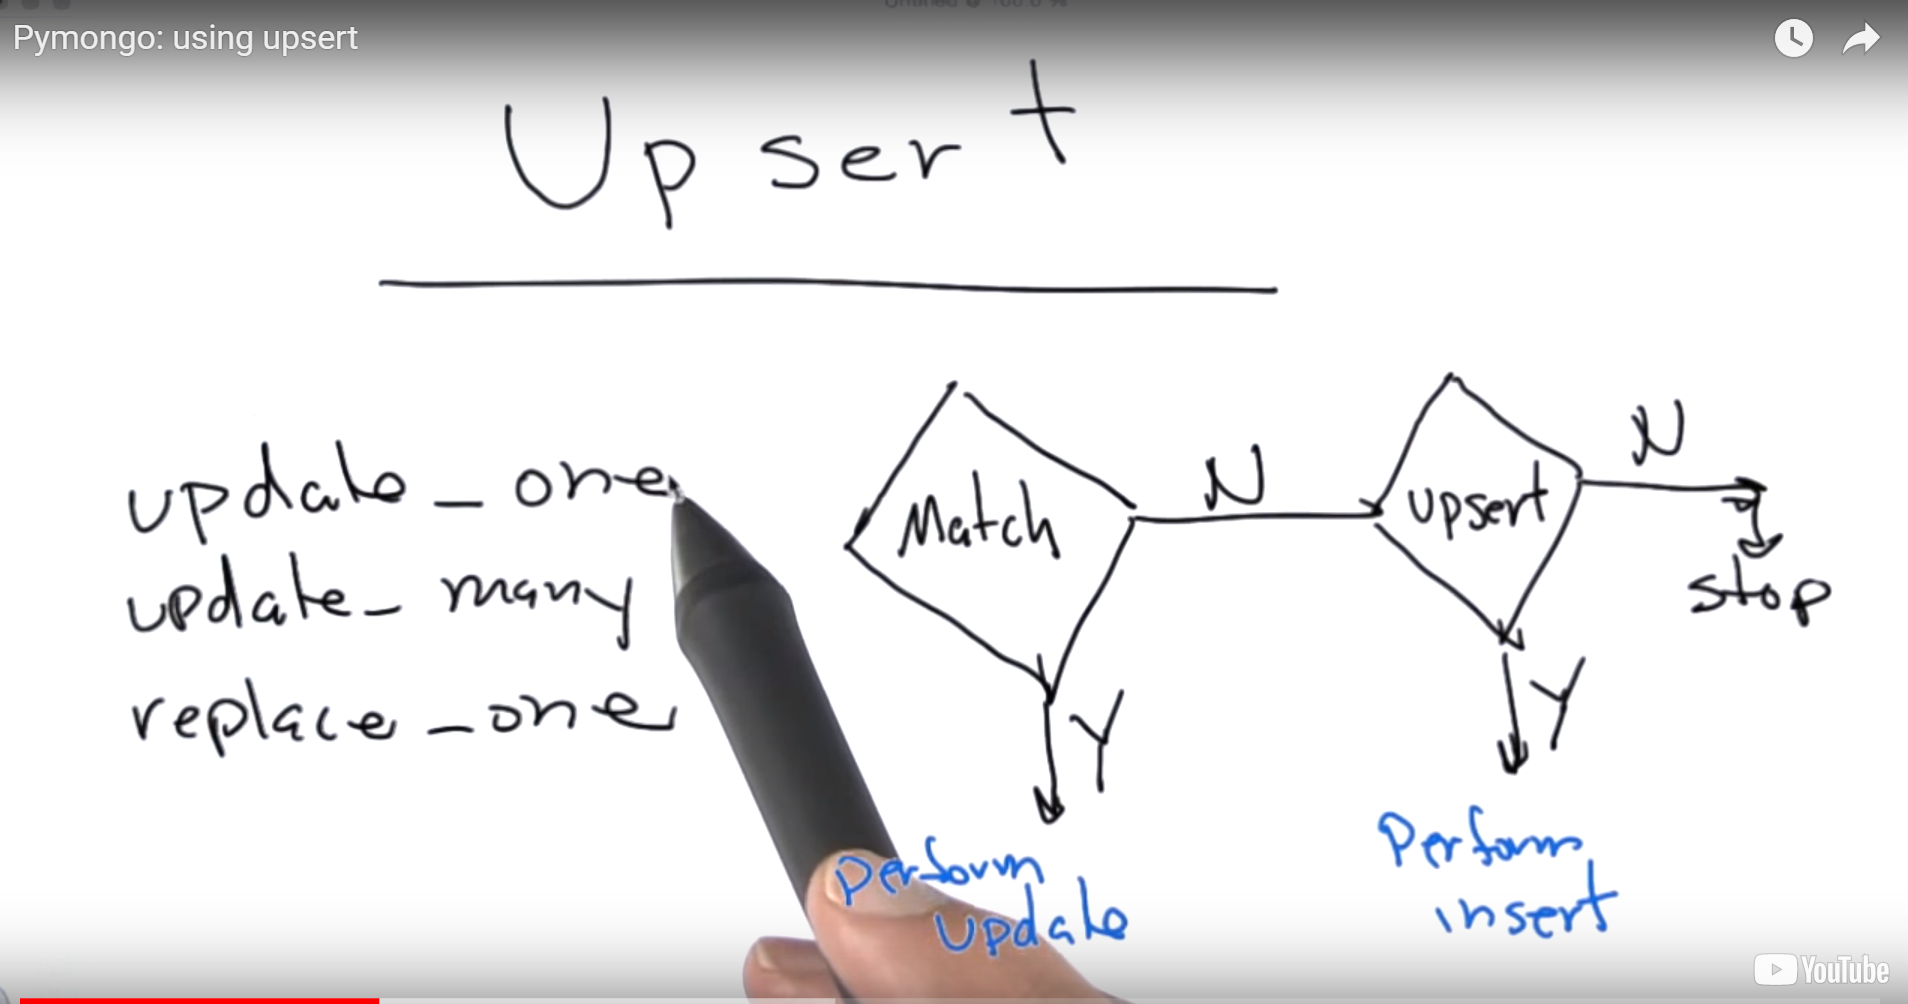 Pymongo: using upsert
Upsert
update_one
update_many
replace_one
Match
N
upsert
N
stop
Y
Y
Perform
update
Perform
insert
YouTube